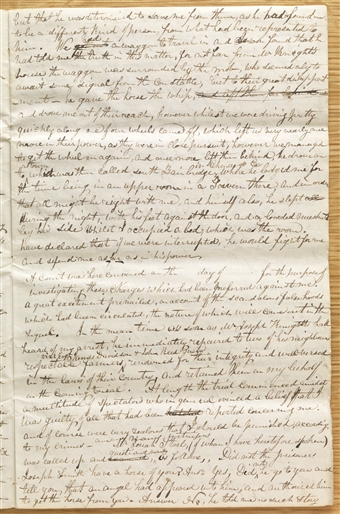 but that he was determined to save me from them, as he had found me
to be a different kind of person from what had been represented to
him. We had a waggon to travel in and I soon found that he
had told me the truth in this matter, for not far from Mr Knights
house the waggon was surrounded by the mob, who seemed only to
await some signal from the Constable; but to their great disappoint
-ment he gave the horse the whip,
and drove me out of their reach, however whilst we were driving pretty
quickly along one of our wheels came off, which left us very nearly once
more in their power, as they were in close pursuit; however we managed
to get the wheel on again, and once more left them behind, he drove on
to which was then called South Bainbridge, where he lodged me for
the time being in an upper room in a Tavern there, and in order
that all might be right with me, and himself also, he slept
during the night, with his feet against the door, and a loaded musket
by his side whilst I occupied a bed, which was in the room.
have declared that if we were interrupted, he would fight for me
and defend me as far as in his power.
A Court was here convened on the day of for the purpose of
investigating those charges which had been preferred against me.
a great excitement prevailed, on account of the scandalous falsehoods
which had been circulated, the nature of which will come out in the
sequel. In the mean time as soon as Mr Joseph Knight had
heard of my arrest, he immediately repaired to two of his neighbours
respectable farmers, renowned for their integrity and well versed
in the laws of their Country, and retained them on my behalf
during the trial. At length the trial commenced amidst
a multitude of Spectators who in general evinced a belief that I
was guilty of all that had been reported concerning me.
and of course were very zealous that I should be punished according
to my crimes, (of whom I have heretofore spoken)
was called up and as follows, Did not the prisoner
Joseph Smith have a horse of you? Ansr Yes, Did not he go to you and
tell you, that an angel had appeared unto him, and authorised him
to get the horse from you? Answer No, he told me no such story